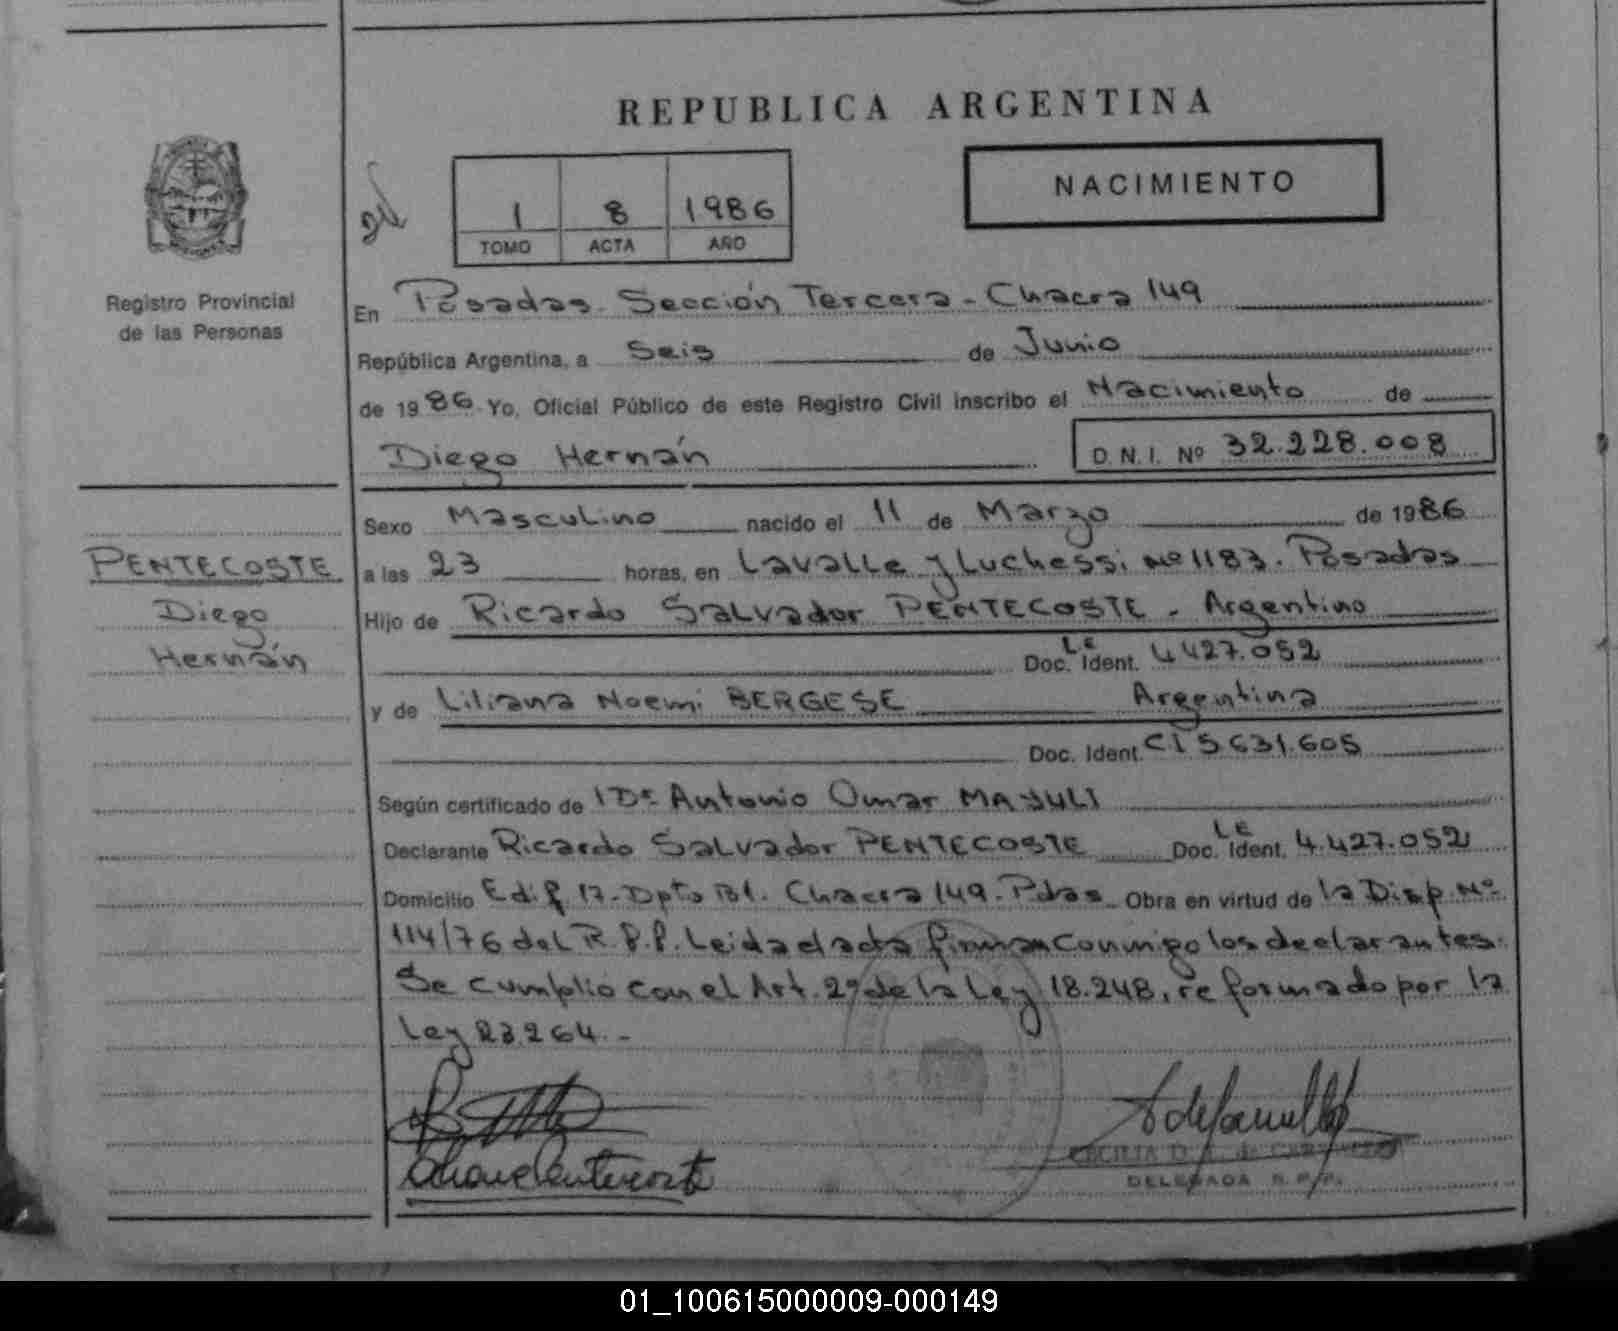 REPUBLICA ARGENTINA
NACIMIENTO
1 8 1986
TOMO ACTA AÑO
Registro Provincial
de las Personas
En Posadas. Sección Tercera - Chacra 149
República Argentina, a Seis de Junio
de 1986 Yo, Oficial Público de este Registro Civil inscribo el Nacimiento de
Diego Hernán D. N. I. Nº 32.228.008
Sexo Masculino nacido el 11 de Marzo de 1986
PENTECOSTE
Diego
Hernán
a las 23 horas, en Lavalle y Luchessi Nº 1183. Posadas
Hijo de Ricardo Salvador PENTECOSTE - Argentino
Doc. Ident. LE 4427.052
y de Liliana Noemi BERGESE Argentina
Doc. Ident. CI 5631.605
Según certificado de Dr. Antonio Omar
Declarante Ricardo Salvador PENTECOSTE Doc. Ident. LE 4.427.052
Domicilio Edif 17 - Dpto Chacra 149. Pdas. Obra en virtud de la Disp. Nº
114/76 del R.P.P. Leida el acta firman conmigo los declarantes.
Se cumplio con el Art. 2º de la Ley 18.248, reformado por la
Ley 23.264. -
CECILIA D. de
DELEGADA R.P.P.
01_100615000009-000149